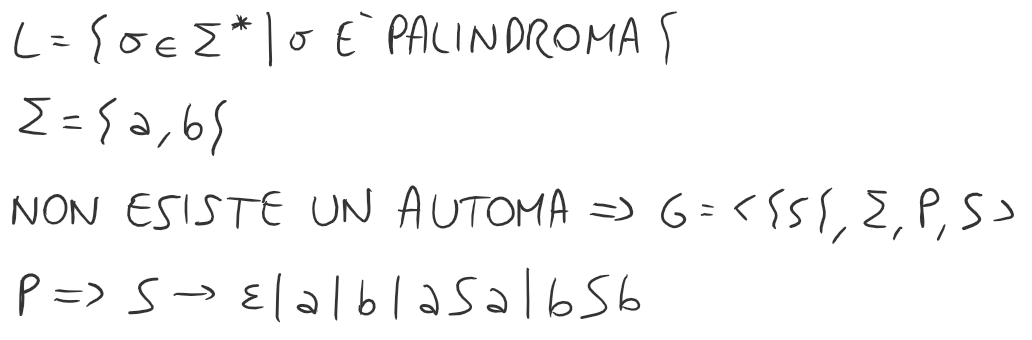 L = {σ ∈ Σ* | σ E` PALINDROMA}
Σ = {a, b}
NON ESISTE UN AUTOMA => G = <{S}, Σ, P, S>
P => S → ε | a | b | aSa | bSb